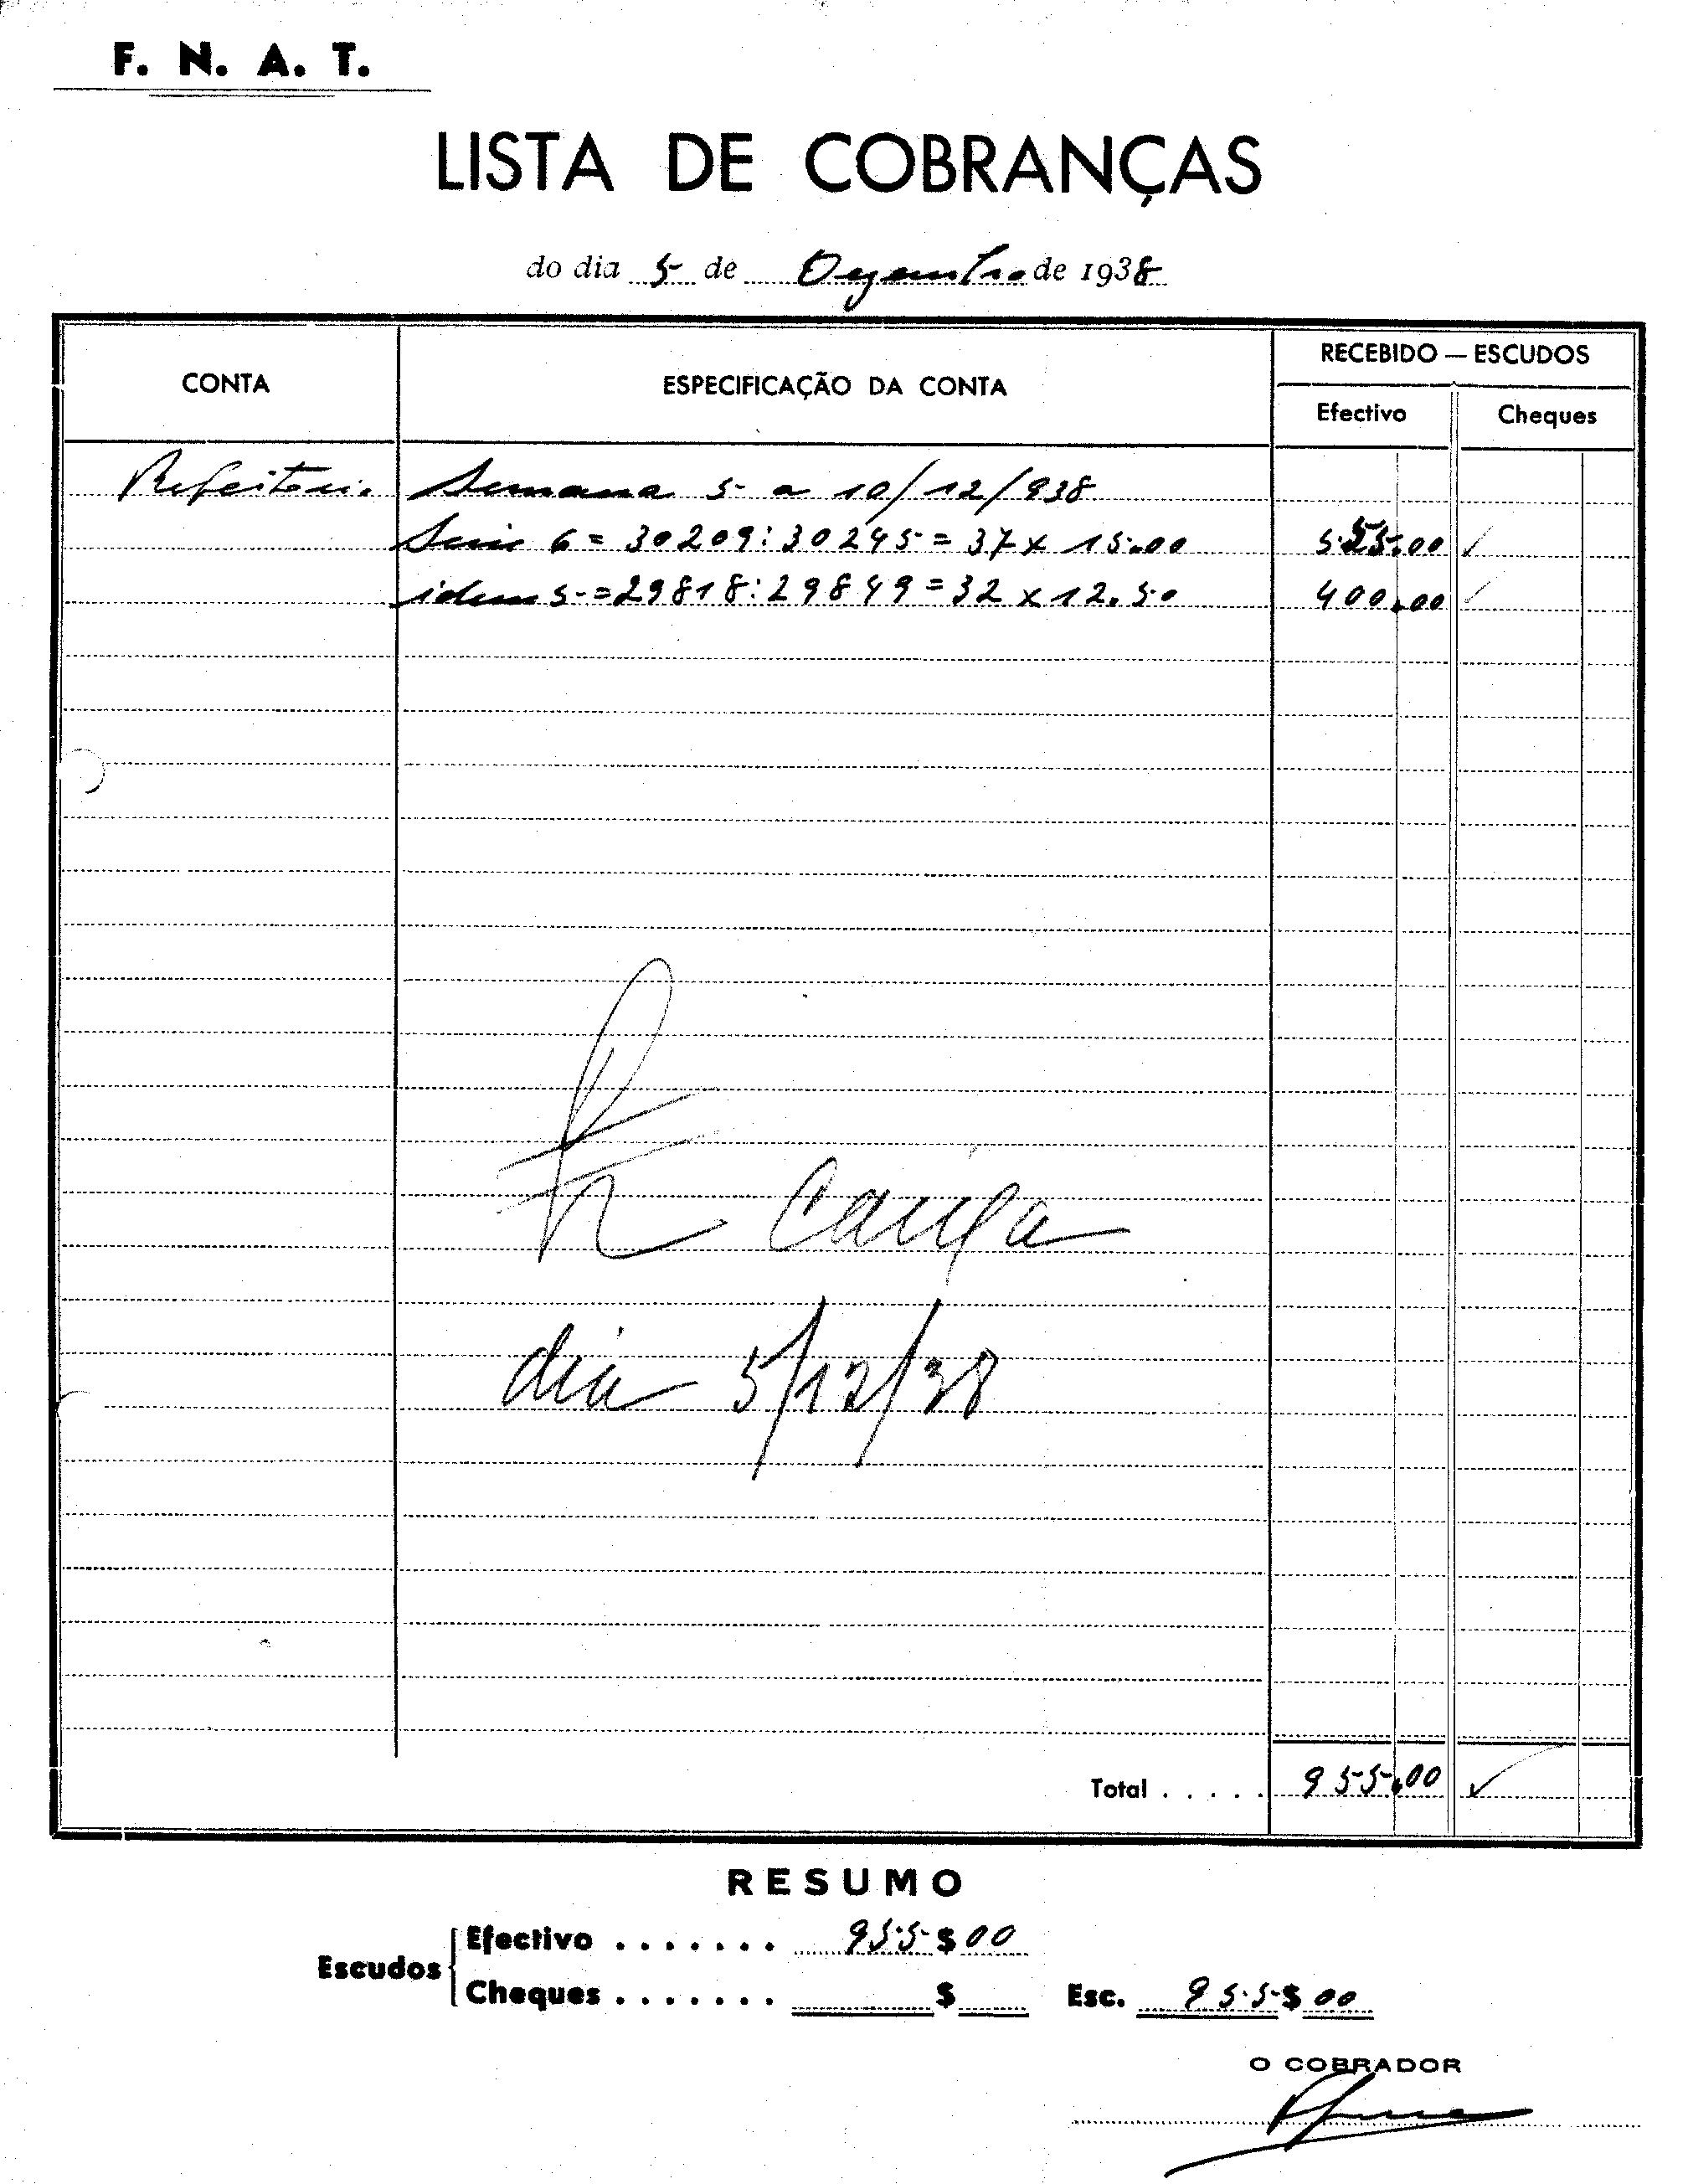 F. N. A. T.
LISTA DE COBRANÇAS
do dia 5 de Dezembro de 1938
CONTA
ESPECIFICAÇÃO DA CONTA
RECEBIDO — ESCUDOS
Efectivo
Cheques
Refeitorio Semana 5 a 10/12/938
Serie 6 = 30209:30245 = 37 x 15.00 555.00
idem 5 = 29818:29849 = 32 x 12.50 400.00
Caixa
dia 5/12/38
Total . . . . . 955.00
RESUMO
Escudos
Efectivo . . . . . . . 955$00
Cheques . . . . . . . $ Esc. 955$00
O COBRADOR